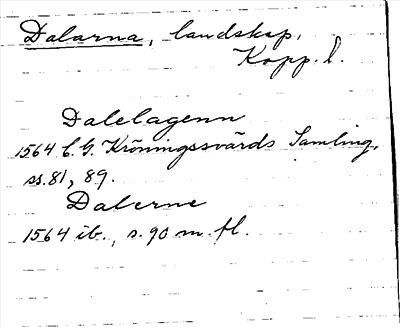 Dalarna, landskap,
Kopp. l.
Dalelagenn
1564 C. G. Kröningssvärds Samling,
ss. 81, 89.
Dalerne
1564 ib., s. 90 m. fl.